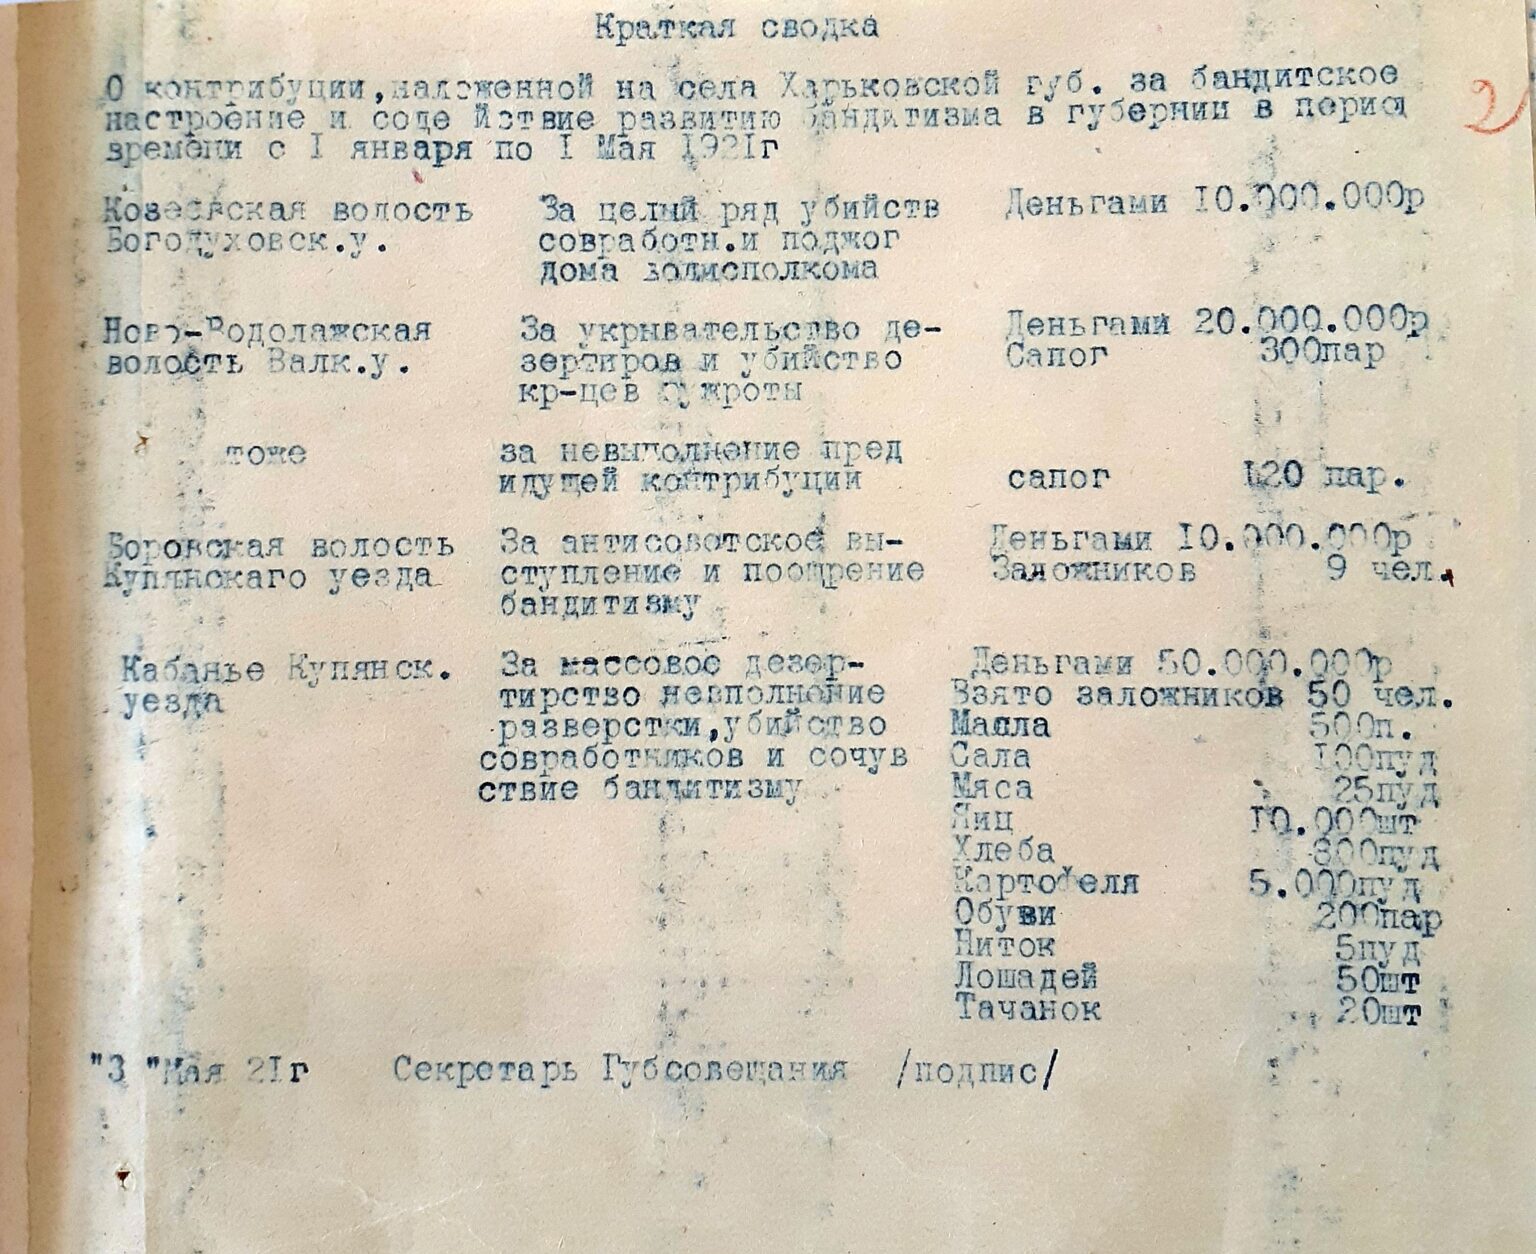 Краткая сводка
2
О контрибуции,наложенной на села Харьковской губ. за бандитское
настроение и соде йствие развитию бандитизма в губернии в период
времени с I января по I Мая 1921г
Козеевская волость За целый ряд убийств Деньгами 10.000.000р
Богодуховск.у. совработн.и поджог
дома волисполкома
Ново-Водолажская За укрывательство де- Деньгами 20.000.000р
волость Валк.у. зертиров и убийство Сапог 300пар
кр-цев гужроты
тоже за невыполнение пред
идущей контрибуции сапог 120 пар.
Боровская волость За антисоветское вы- Деньгами 10.000.000р
Купянскаго уезда ступление и поощрение Заложников 9 чел.
бандитизму
Кабанье Купянск. За массовое дезер- Деньгами 50.000.000р
уезда тирство невполнение Взято заложников 50 чел.
разверстки,убийство Масла 500п.
совработников и сочув Сала 100пуд
ствие бандитизму Мяса 25пуд
Яиц 10.000шт
Хлеба 300пуд
Картофеля 5.000пуд
Обуви 200пар
Ниток 5пуд
Лошадей 50шт
Тачанок 20шт
"3 "Мая 21г Секретарь Губсовещания /подпис/